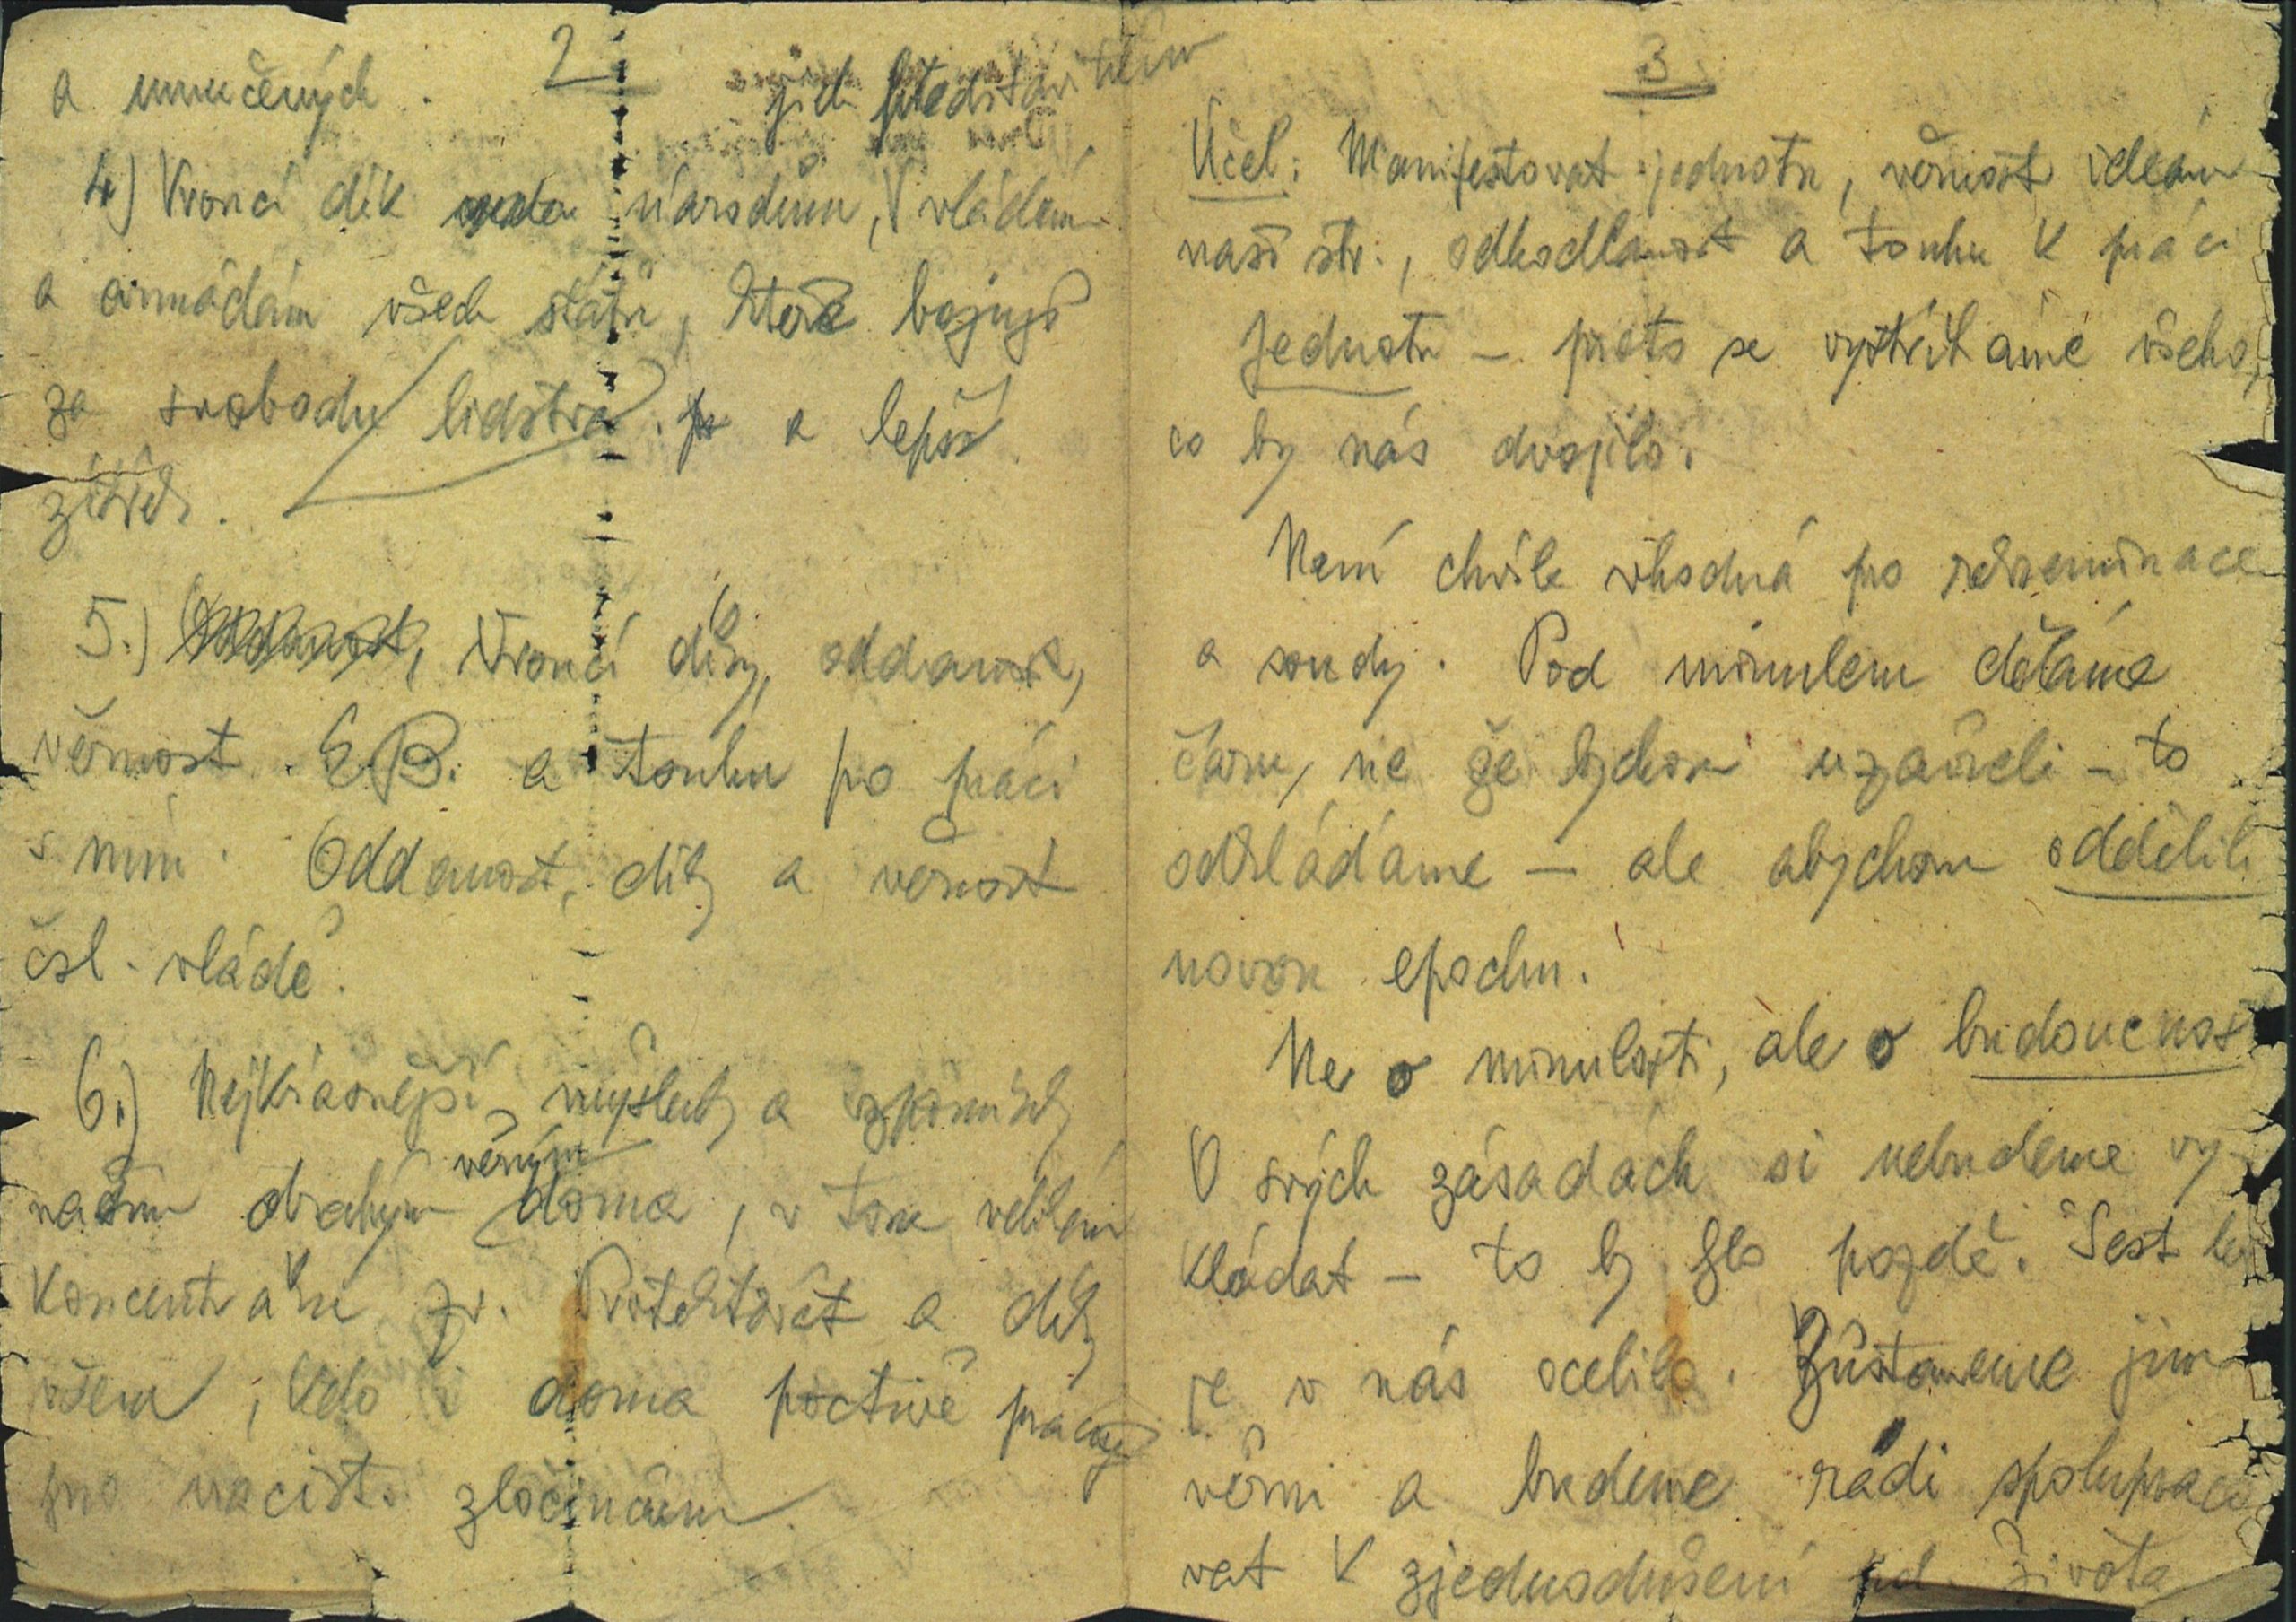 2
a umučených.
jich představitelům
4) Vroucí dík národům, vládám
a armádám všech států, které bojují
za svobodu lidstva. a lepší
zítřek.
5.) Vroucí díky, oddanost,
věrnost E.B. a touhu po práci
s ním. Oddanost, díky a věrnost
čsl. vládě.
6.) Nejkrásnější myšlenky a vzpomínky
věrným
našim drahým doma, v tom velikém
koncentráku zv. Protektorát a díky
všem, kdo i doma poctivě pracují
pro nacist. zločincům.
3
Účel: Manifestovat jednotu, věrnost ideám
naší str., odhodlanost a touhu k práci
Jednotu – proto se vystříháme všeho,
co by nás dvojilo.
Není chvíle vhodná pro rekriminace
a soudy. Pod minulem děláme
čáru, ne že bychom uzavřeli – to
odkládáme – ale abychom oddělili
novou epochu.
Ne o minulosti, ale o budoucnost
O svých zásadách si nebudeme vy-
kládat – to by šlo pozdě. Šest let
je v nás ocelilo. Zůstaneme jim
věrni a budeme rádi spolupraco
vat k zjednodušení života